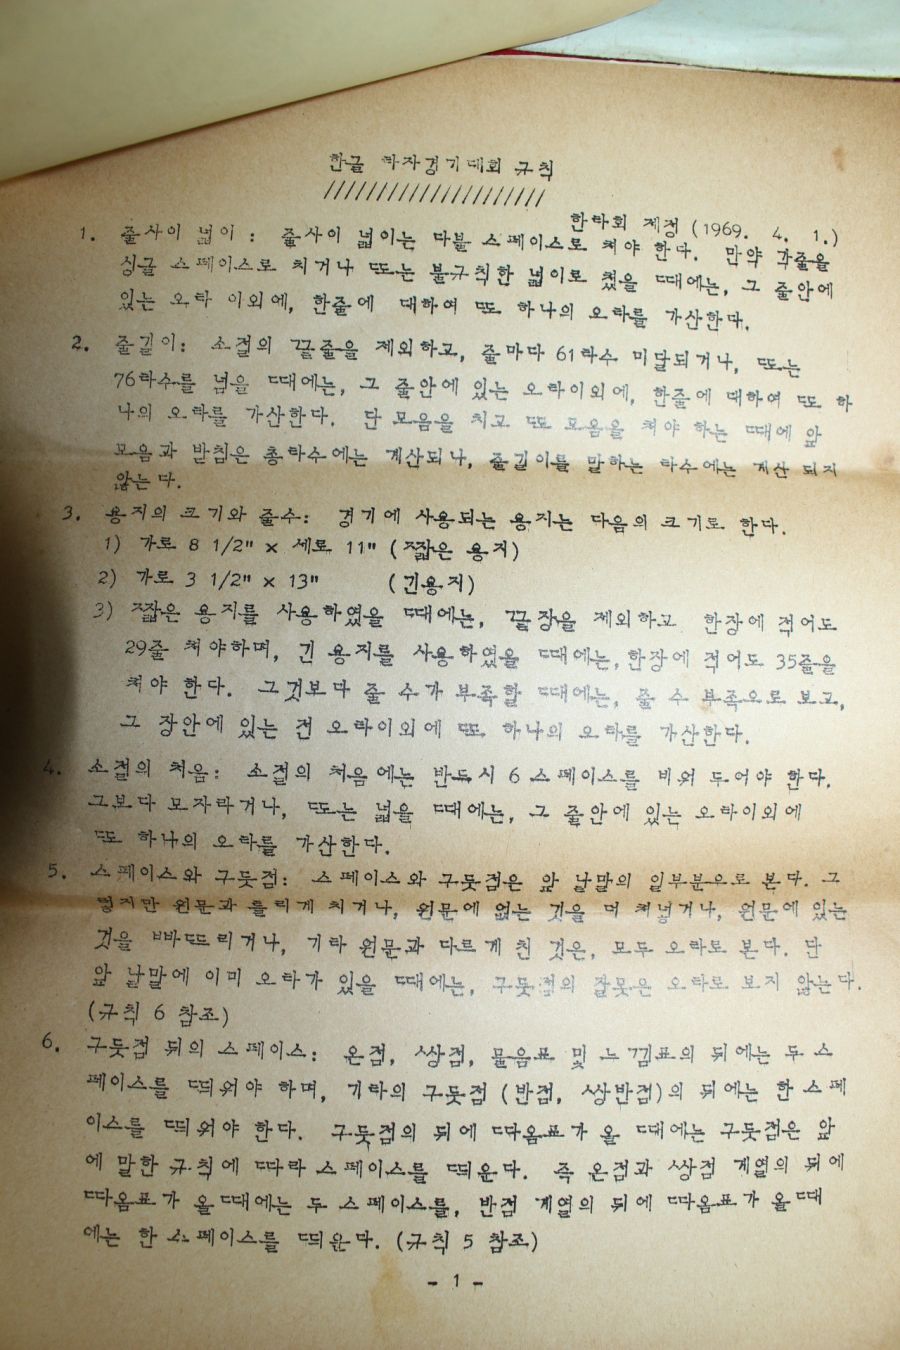 한글 타자경기대회 규칙
////////////////////
한타회 제정 (1969. 4. 1.)
1. 줄사이 넓이 : 줄사이 넓이는 다블 스페이스로 쳐야 한다. 만약 각줄을
싱글 스페이스로 치거나 또는 불규칙한 넓이로 쳤을 때에는, 그 줄안에
있는 오타 이외에, 한줄에 대하여 또 하나의 오타를 가산한다.
2. 줄길이: 소절의 끝줄을 제외하고, 줄마다 61타수 미달되거나, 또는
76타수를 넘을 때에는, 그 줄안에 있는 오타이외에, 한줄에 대하여 또 하
나의 오타를 가산한다. 단 모음을 치고 또 모음을 쳐야 하는 때에 앞
모음과 받침은 총타수에는 계산되나, 줄길이를 말하는 타수에는 계산 되지
않는다.
3. 용지의 크기와 줄수: 경기에 사용되는 용지는 다음의 크기로 한다.
1) 가로 8 1/2" x 세로 11" (짧은 용지)
2) 가로 3 1/2" x 13" (긴용지)
3) 짧은 용지를 사용하였을 때에는, 끝장을 제외하고 한장에 적어도
29줄 쳐야하며, 긴 용지를 사용하였을 때에는, 한장에 적어도 35줄을
쳐야 한다. 그것보다 줄 수가 부족할 때에는, 줄 수 부족으로 보고,
그 장안에 있는 전 오타이외에 또 하나의 오타를 가산한다.
4. 소절의 처음: 소절의 처음에는 반드시 6 스페이스를 비워 두어야 한다.
그보다 모자라거나, 또는 넓을 때에는, 그 줄안에 있는 오타이외에
또 하나의 오타를 가산한다.
5. 스페이스와 구둣점: 스페이스와 구둣점은 앞 낱말의 일부분으로 본다. 그
렇지만 원문과 틀리게 치거나, 원문에 없는 것을 더 쳐넣거나, 원문에 있는
것을 빠뜨리거나, 기타 원문과 다르게 친 것은, 모두 오타로 본다. 단
앞 낱말에 이미 오타가 있을 때에는, 구둣점의 잘못은 오타로 보지 않는다.
(규칙 6 참조)
6. 구둣점 뒤의 스페이스: 온점, 쌍점, 물음표 및 느낌표의 뒤에는 두 스
페이스를 띄워야 하며, 기타의 구둣점 (반점, 쌍반점)의 뒤에는 한 스페
이스를 띄워야 한다. 구둣점의 뒤에 따옴표가 올 때에는 구둣점은 앞
에 말한 규칙에 따라 스페이스를 띄운다. 즉 온점과 쌍점 계열의 뒤에
따옴표가 올때에는 두 스페이스를, 반점 계열의 뒤에 따옴표가 올때
에는 한 스페이스를 띄운다. (규칙 5 참조)
- 1 -